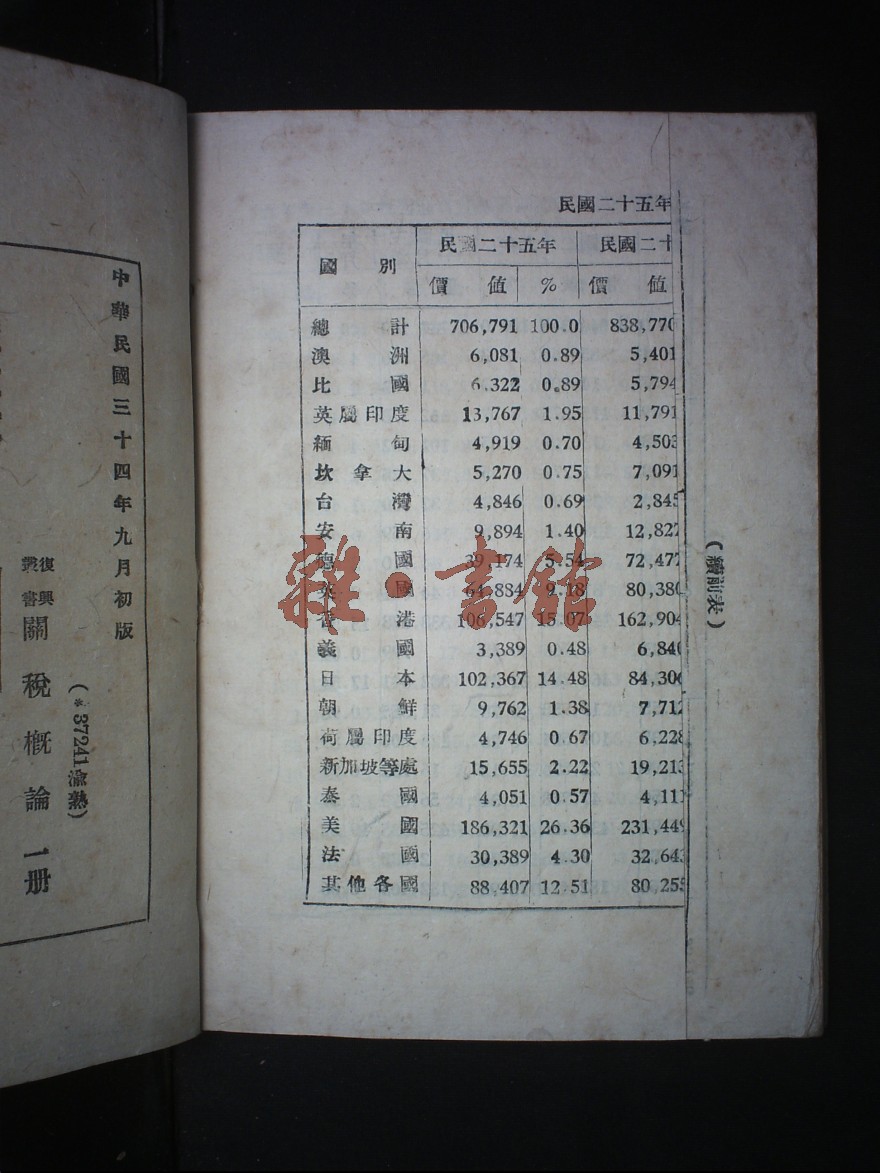 中華民國三十四年九月初版
復興叢書
關稅概論 一册
(*37241
民國二十五年
國別 民國二十五年 民國二十
價值 % 價值
總計 706,791 100.0 838,770
澳洲 6,081 0.89 5,401
比國 6.322 0.89 5,794
英屬印度 13,767 1.95 11,791
緬甸 4,919 0.70 4,503
坎拿大 5,270 0.75 7,091
台灣 4,846 0.69 2,845
安南 9,894 1.40 12,822
德國 39,174 5.54 72,477
英國 64,884 9.18 80,380
香港 106,547 15.07 162,904
義國 3,389 0.48 6,840
日本 102,367 14.48 84,306
朝鮮 9,762 1.38 7,712
荷屬印度 4,746 0.67 6.228
新加坡等處 15,655 2.22 19,213
泰國 4,051 0.57 4,111
美國 186,321 26.36 231,449
法國 30,389 4.30 32,643
其他各國 88,407 12.51 80,255
(續前表)
雜·書館